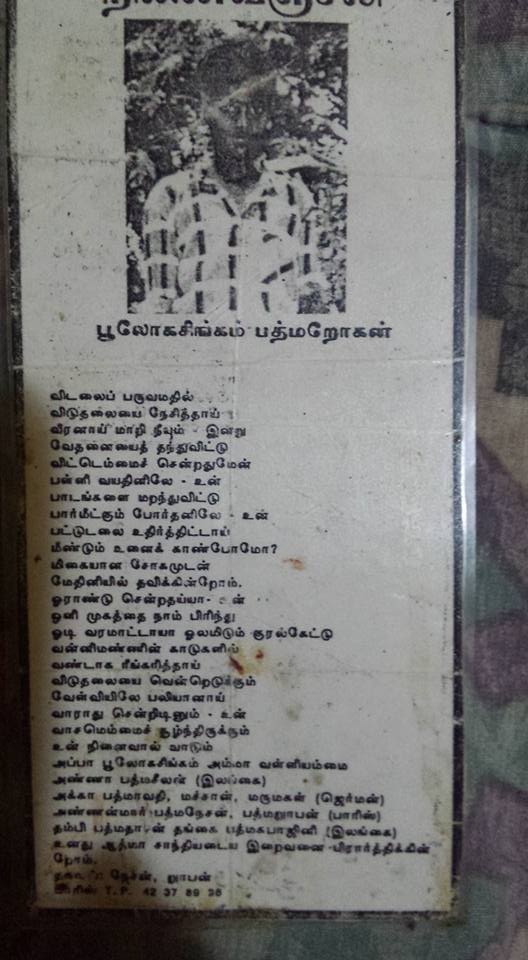 பூலோகசிங்கம் பத்மறோகன்
விடலைப் பருவமதில்
விடுதலையை நேசித்தாய்
வீரனாய் மாறி நீயும் - இன்று
வேதனையைத் தந்துவிட்டு
விட்டெம்மைச் சென்றதுமேன்
பள்ளி வயதினிலே - உன்
பாடங்களை மறந்துவிட்டு
பார்மீட்கும் போர்தனிலே - உன்
பட்டுடலை உதிர்த்திட்டாய்
மீண்டும் உனைக் காண்போமோ?
மிகையான சோகமுடன்
மேதினியில் தவிக்கின்றோம்.
ஓராண்டு சென்றதய்யா- உன்
ஒளி முகத்தை நாம் பிரிந்து
ஓடி வரமாட்டாயா ஓலமிடும் குரல்கேட்டு
வன்னிமண்ணின் காடுகளில்
வண்டாக ரீங்கரித்தாய்
விடுதலையை வென்றெடுக்கும்
வேள்வியிலே பலியானாய்
வாராது சென்றிடினும் - உன்
வாசமெம்மைச் சூழ்ந்திருக்கும்
உன் நினைவால் வாடும்
அப்பா பூலோகசிங்கம் அம்மா வள்ளியம்மை
அண்ணா பத்மசீலன் (இலங்கை)
அக்கா பத்மாவதி, மச்சான், மருமகன் (ஜெர்மன்)
அண்ணன்மார் பத்மநேசன், பத்மறூபன் (பாரிஸ்)
தம்பி தங்கை (இலங்கை)
உனது ஆத்மா சாந்தியடைய இறைவனை பிரார்த்திக்கின்
றோம்.
நேசன், றூபன்
பாரிஸ் T.P. 42 37 89 36